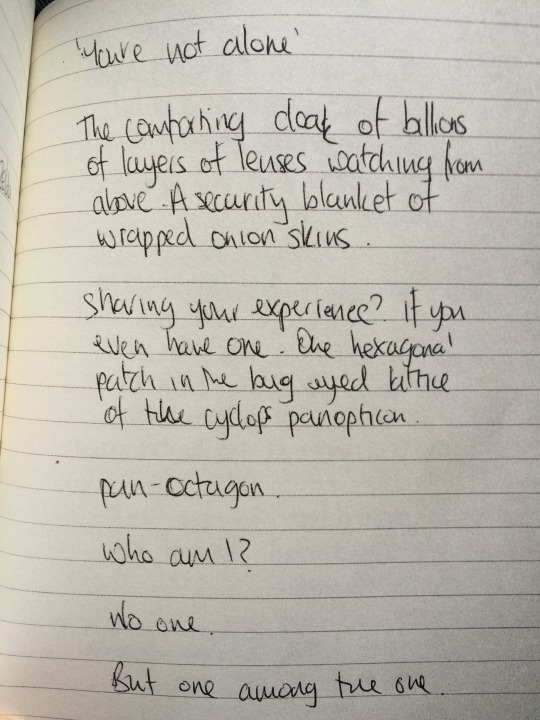 'You're not alone'
The comforting cloak of billions
of layers of lenses watching from
above. A security blanket of
wrapped onion skins.
Sharing your experience? If you
even have one. One hexagonal
patch in the bug eyed lattice
of the cyclops panopticon.
pan-octagon.
Who am I?
No one.
But one among the one.